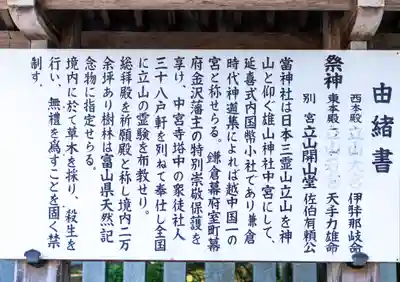 由緒書
祭神
西本殿 立山大
伊弉那岐命
東本殿
天手力雄命
別宮 立山開山堂 佐伯有頼公
當神社は日本三霊山立山を神
山と仰ぐ雄山神社中宮にして、
延喜式内国幣小社であり兼倉
時代神道集によれば越中国一の
宮と称せらる。鎌倉幕府室町幕
府金沢藩主の特別崇敬保護を
享け、中宮寺塔中の衆徒社人
三十八戸軒を列ねて奉仕し全国
に立山の霊験を布教せり。
総拝殿を祈願殿と称し境内二万
余坪あり樹林は富山県天然記
念物に指定せらる。
境内に於て草木を採り、殺生を
行い、無禮を為すことを固く禁
制す。